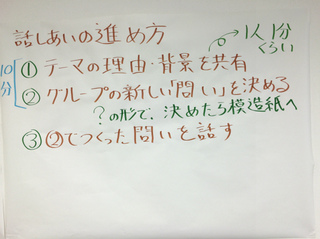 話しあいの進め方
1人1分くらい
10分
①テーマの理由・背景を共有
②グループの新しい「問い」を決める
?の形で、決めたら模造紙へ
③②でつくった問いを話す